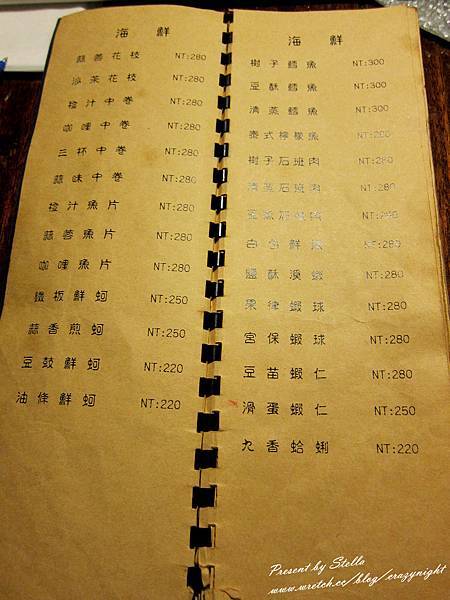 海鮮
蒜蓉花枝 NT:280
沙茶花枝 NT:280
橙汁中卷 NT:280
咖哩中卷 NT:280
三杯中卷 NT:280
蒜味中卷 NT:280
橙汁魚片 NT:280
蒜蓉魚片 NT:280
咖哩魚片 NT:280
鐵板鮮蚵 NT:250
蒜香煎蚵 NT:250
豆鼓鮮蚵 NT:220
油條鮮蚵 NT:220
海鮮
樹子鱈魚 NT:300
豆酥鱈魚 NT:300
清蒸鱈魚 NT:300
泰式檸檬魚 NT:280
樹子石斑肉 NT:280
清蒸石斑肉 NT:280
NT:280
白灼鮮 NT:280
鹽酥溪蝦 NT:280
果律蝦球 NT:280
宮保蝦球 NT:280
豆苗蝦仁 NT:280
滑蛋蝦仁 NT:250
九香蛤蜊 NT:220
Present by Stella
www.wretch.cc/blog/crazynight